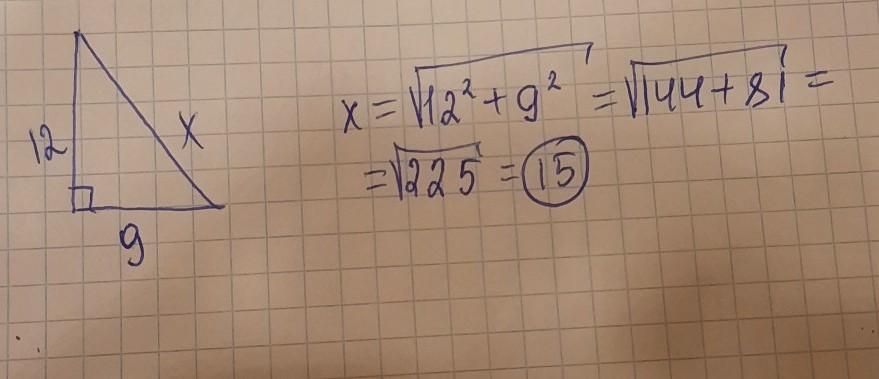 12
x
9
x = √12² + 9² = √144 + 81 =
= √225 = 15